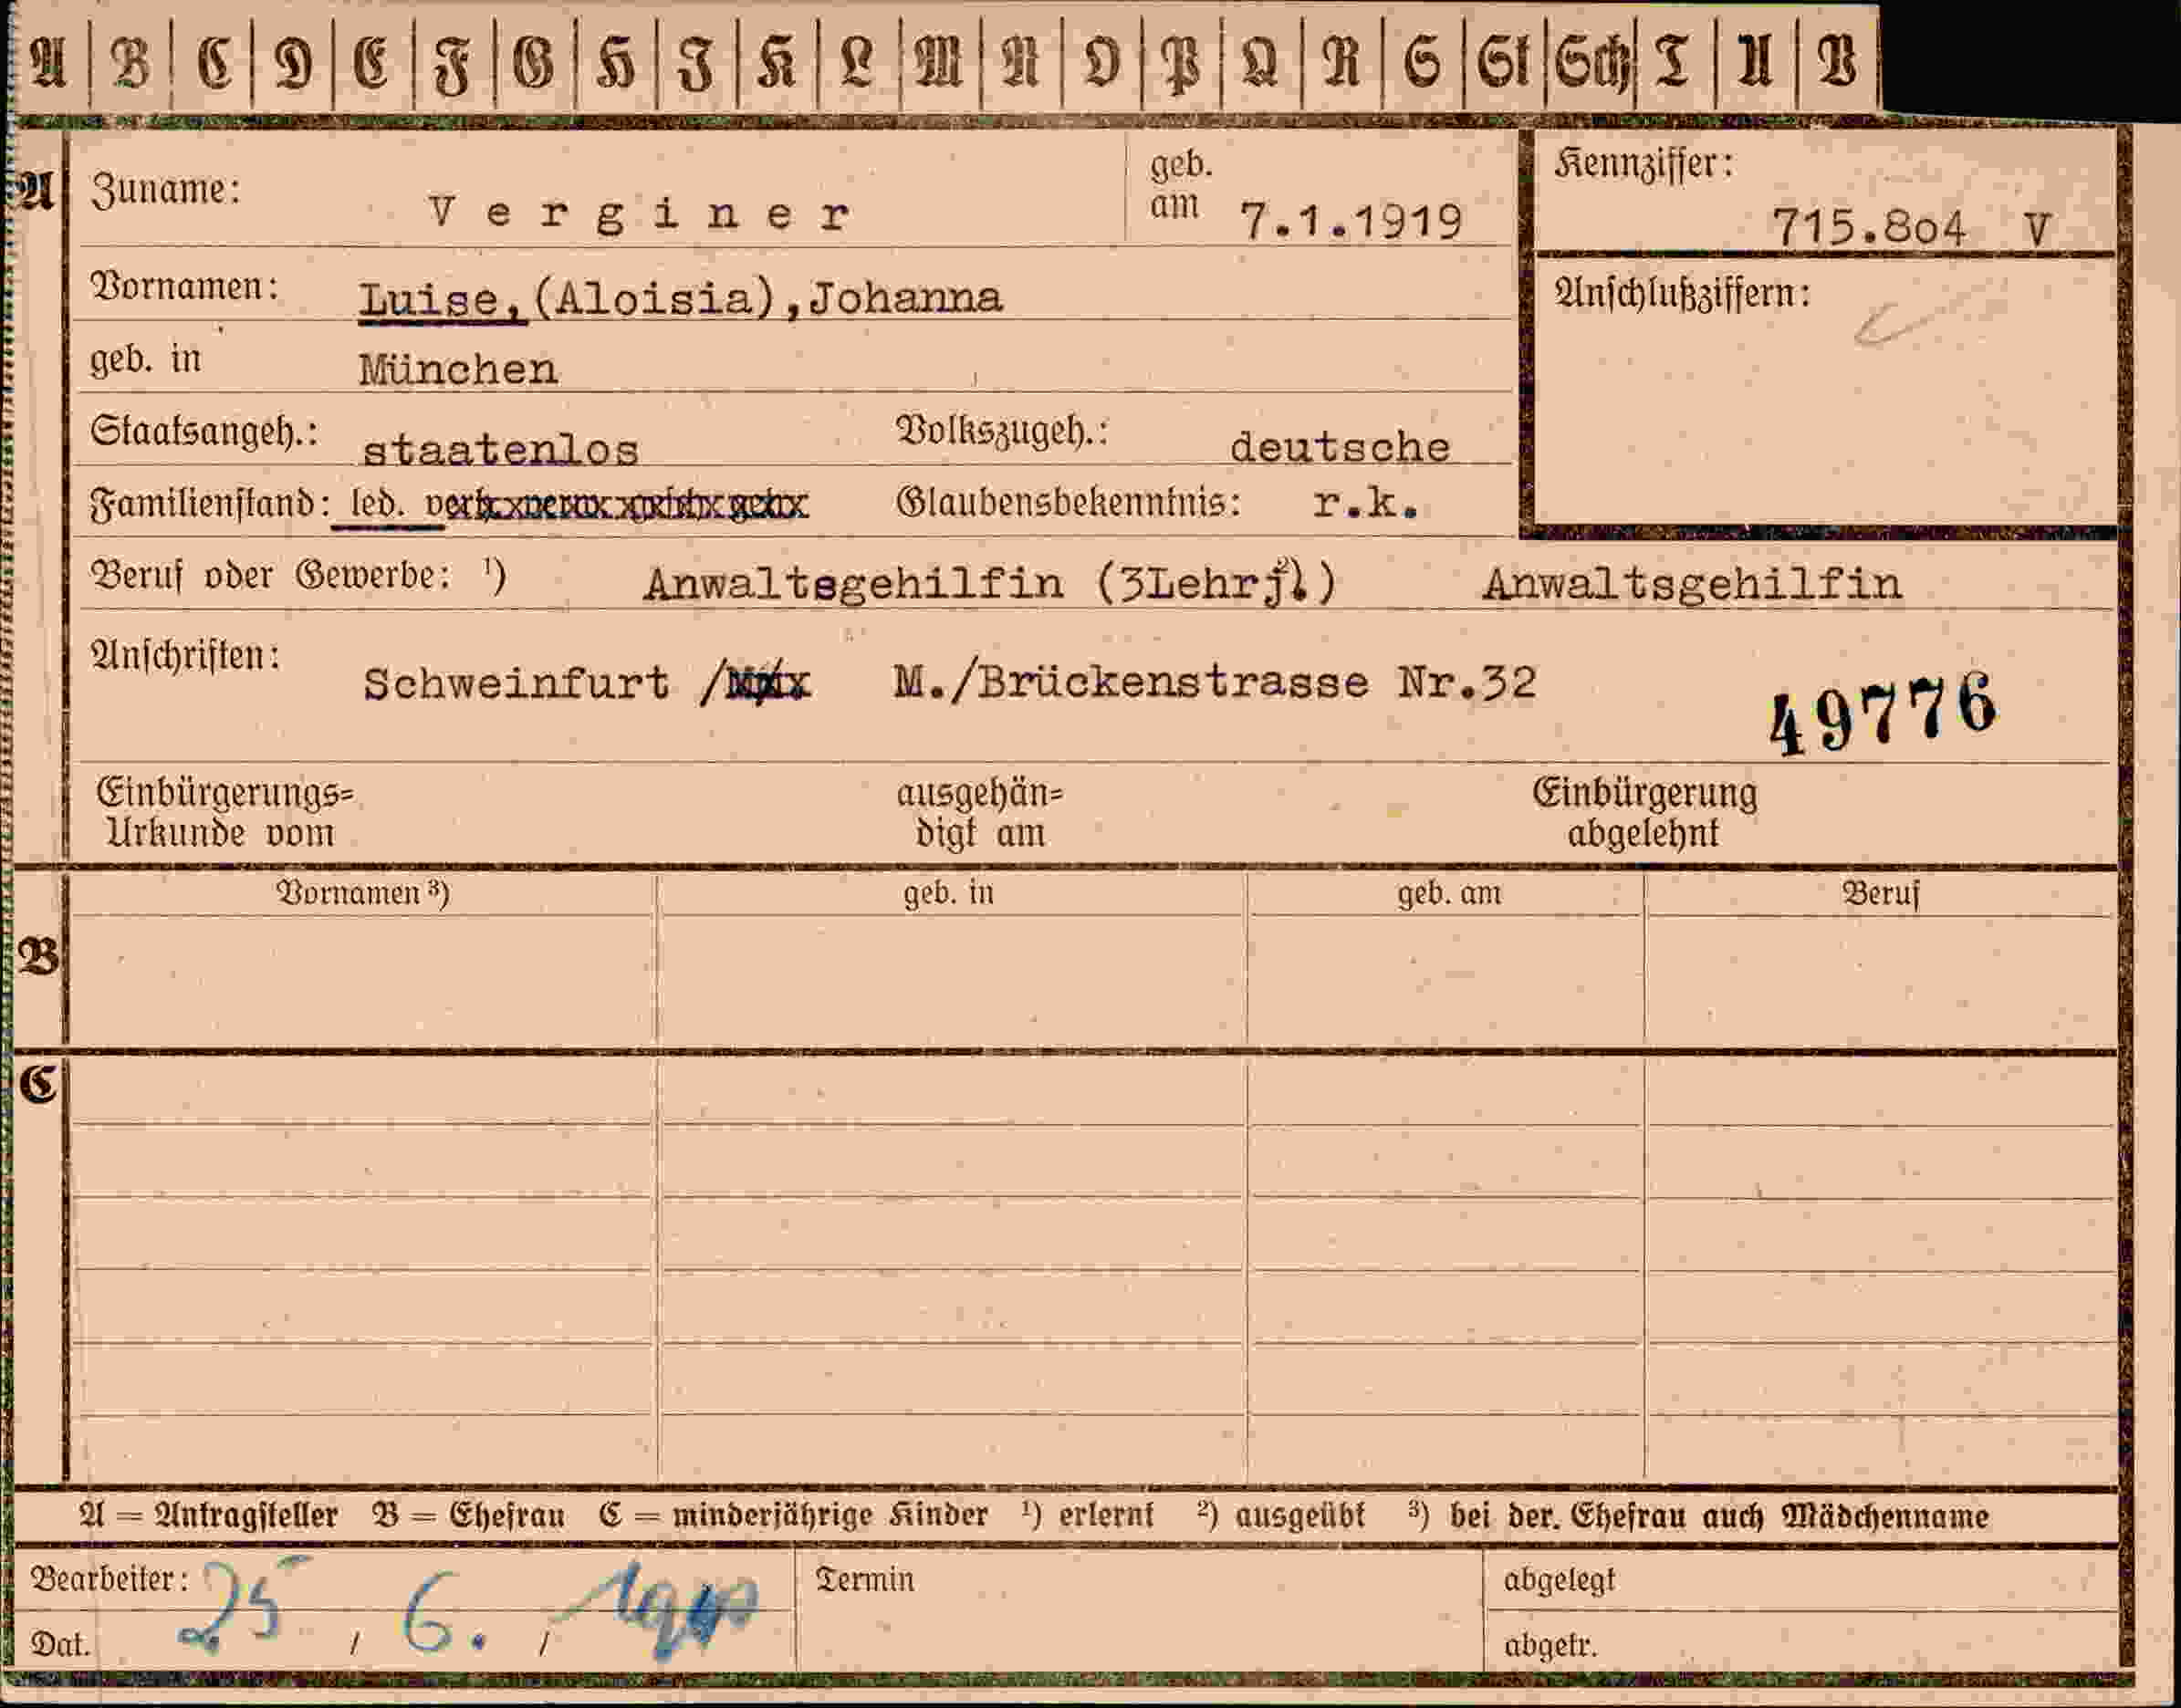 A B C D E F G H J K L M N O P Q R S St Sch T U V
A
Zuname: Verginer geb. am 7.1.1919
Kennziffer: 715.8o4 V
Vornamen: Luise, (Aloisia), Johanna
Anschlußziffern:
geb. in München
Staatsangeh.: staatenlos Volkszugeh.: deutsche
Familienstand: led. Glaubensbekenntnis: r.k.
Beruf oder Gewerbe: ¹) Anwaltsgehilfin (3Lehrj.) ²) Anwaltsgehilfin
Anschriften: Schweinfurt / M./Brückenstrasse Nr.32
49776
Einbürgerungs= ausgehän= Einbürgerung
Urkunde vom digt am abgelehnt
Vornamen ³) geb. in geb. am Beruf
B
C
A = Antragsteller B = Ehefrau C = minderjährige Kinder ¹) erlernt ²) ausgeübt ³) bei der. Ehefrau auch Mädchenname
Bearbeiter: Termin abgelegt
Dat. 25 / 6. / 1940 abgetr.